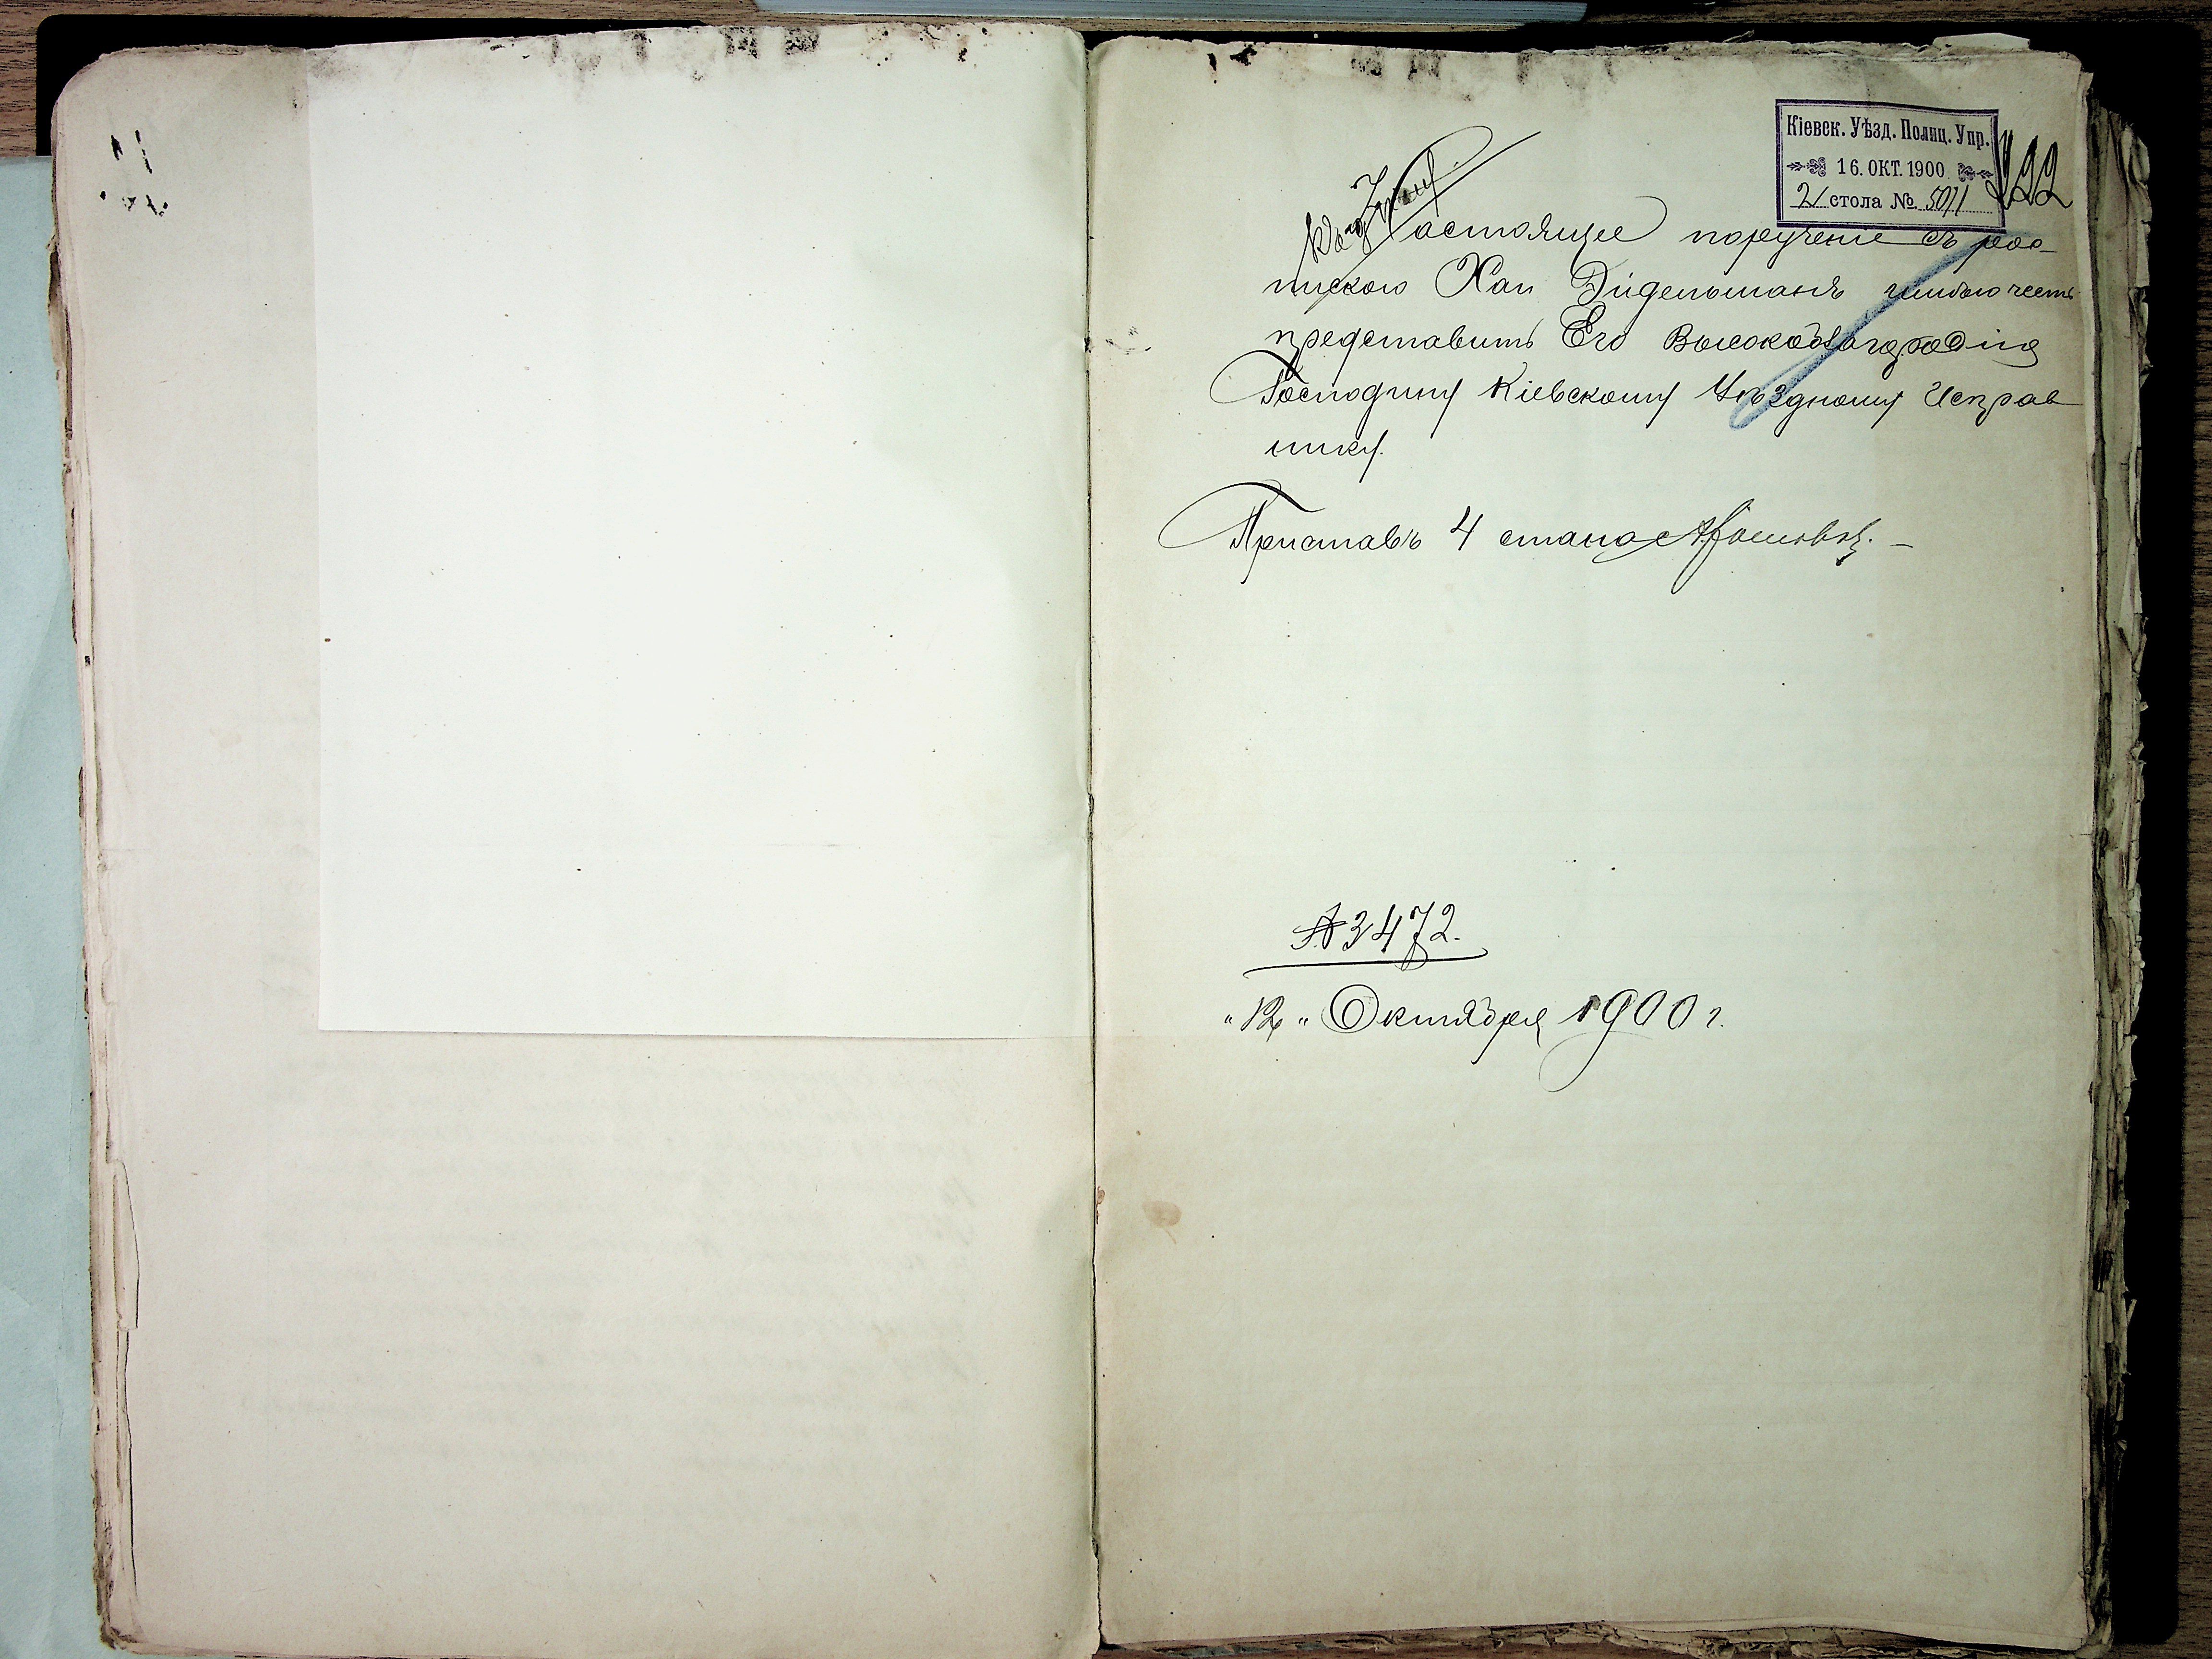 Кіевск. Уѣзд. Полиц. Упр.
16. ОКТ. 1900
2 стола № 5011
222
Настоящее поручение съ рос-
пискою Хаи Эйдельманъ имѣю честь
представить Его Высокоблагородію
Господину Кіевскому Уѣздному Исправ
нику.
Приставъ 4 стана
№ 3472.
"12" Октября 1900 г.